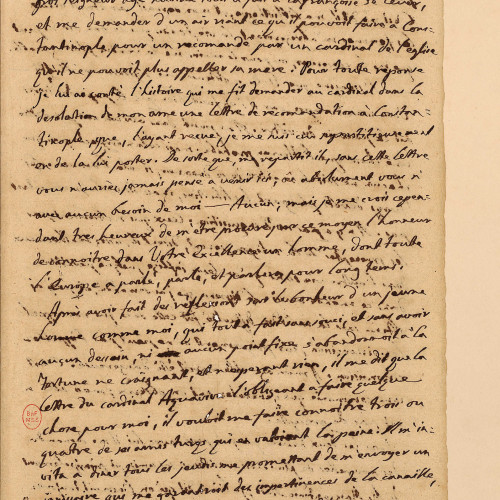 et me demander d'un air riant ce qu'il pouvoit faire à Cons-
tantinople pour un recomandé par un cardinal de l'eglise
qu'il ne pouvoit plus appeller sa mere. Pour toute reponse
je lui ai conté l'histoire qui me fit demander au cardinal dans la
desolation de mon ame une lettre de recommendation à Constan-
tinople que, l'ayant reçue, je me suis cru superstitieusement
de la lui porter. De sorte que, me repartit-il, sans cette lettre
vous n'auriez jamais pensé à venir ici, où absolument vous n'
avez aucun besoin de moi — Aucun; mais je me crois cepen-
dant tres heureux de m'etre procuré par ce moyen l'honneur
de connoitre dans Votre Excellence un homme, dont toute
l'Europe a parlé, parle, et parlera pour long tems.
Après avoir fait des reflexions sur le bonheur d'un jeune
homme comme moi, qui tout à fait sans souci, et sans avoir
aucun dessein, ni aucun point fixe s'abandonnoit à la
fortune ne craignant, et n'esperant rien, il me dit que la
lettre du cardinal Aquaviva l'obligeant à faire quelque
chose pour moi, il vouloit me faire connoitre trois ou
quatre de ses amis turcs qui en valoient la peine. Il m'in-
vita à diner tous les jeudis me promettant de m'envoyer un
janissaire qui me garantiroit des impertinences de la canaille,